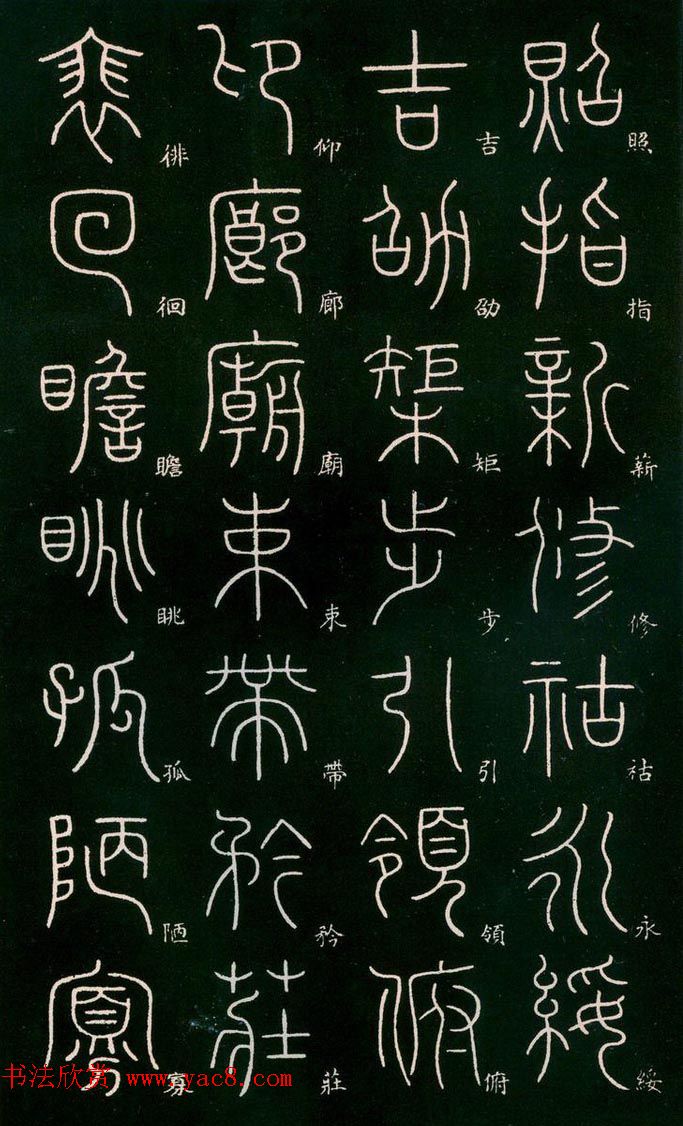 照指薪修祜永綏
吉劭矩步引領俯
仰廊廟束帶矜莊
徘徊瞻眺孤陋寡
书法欣赏 www.yac8.com